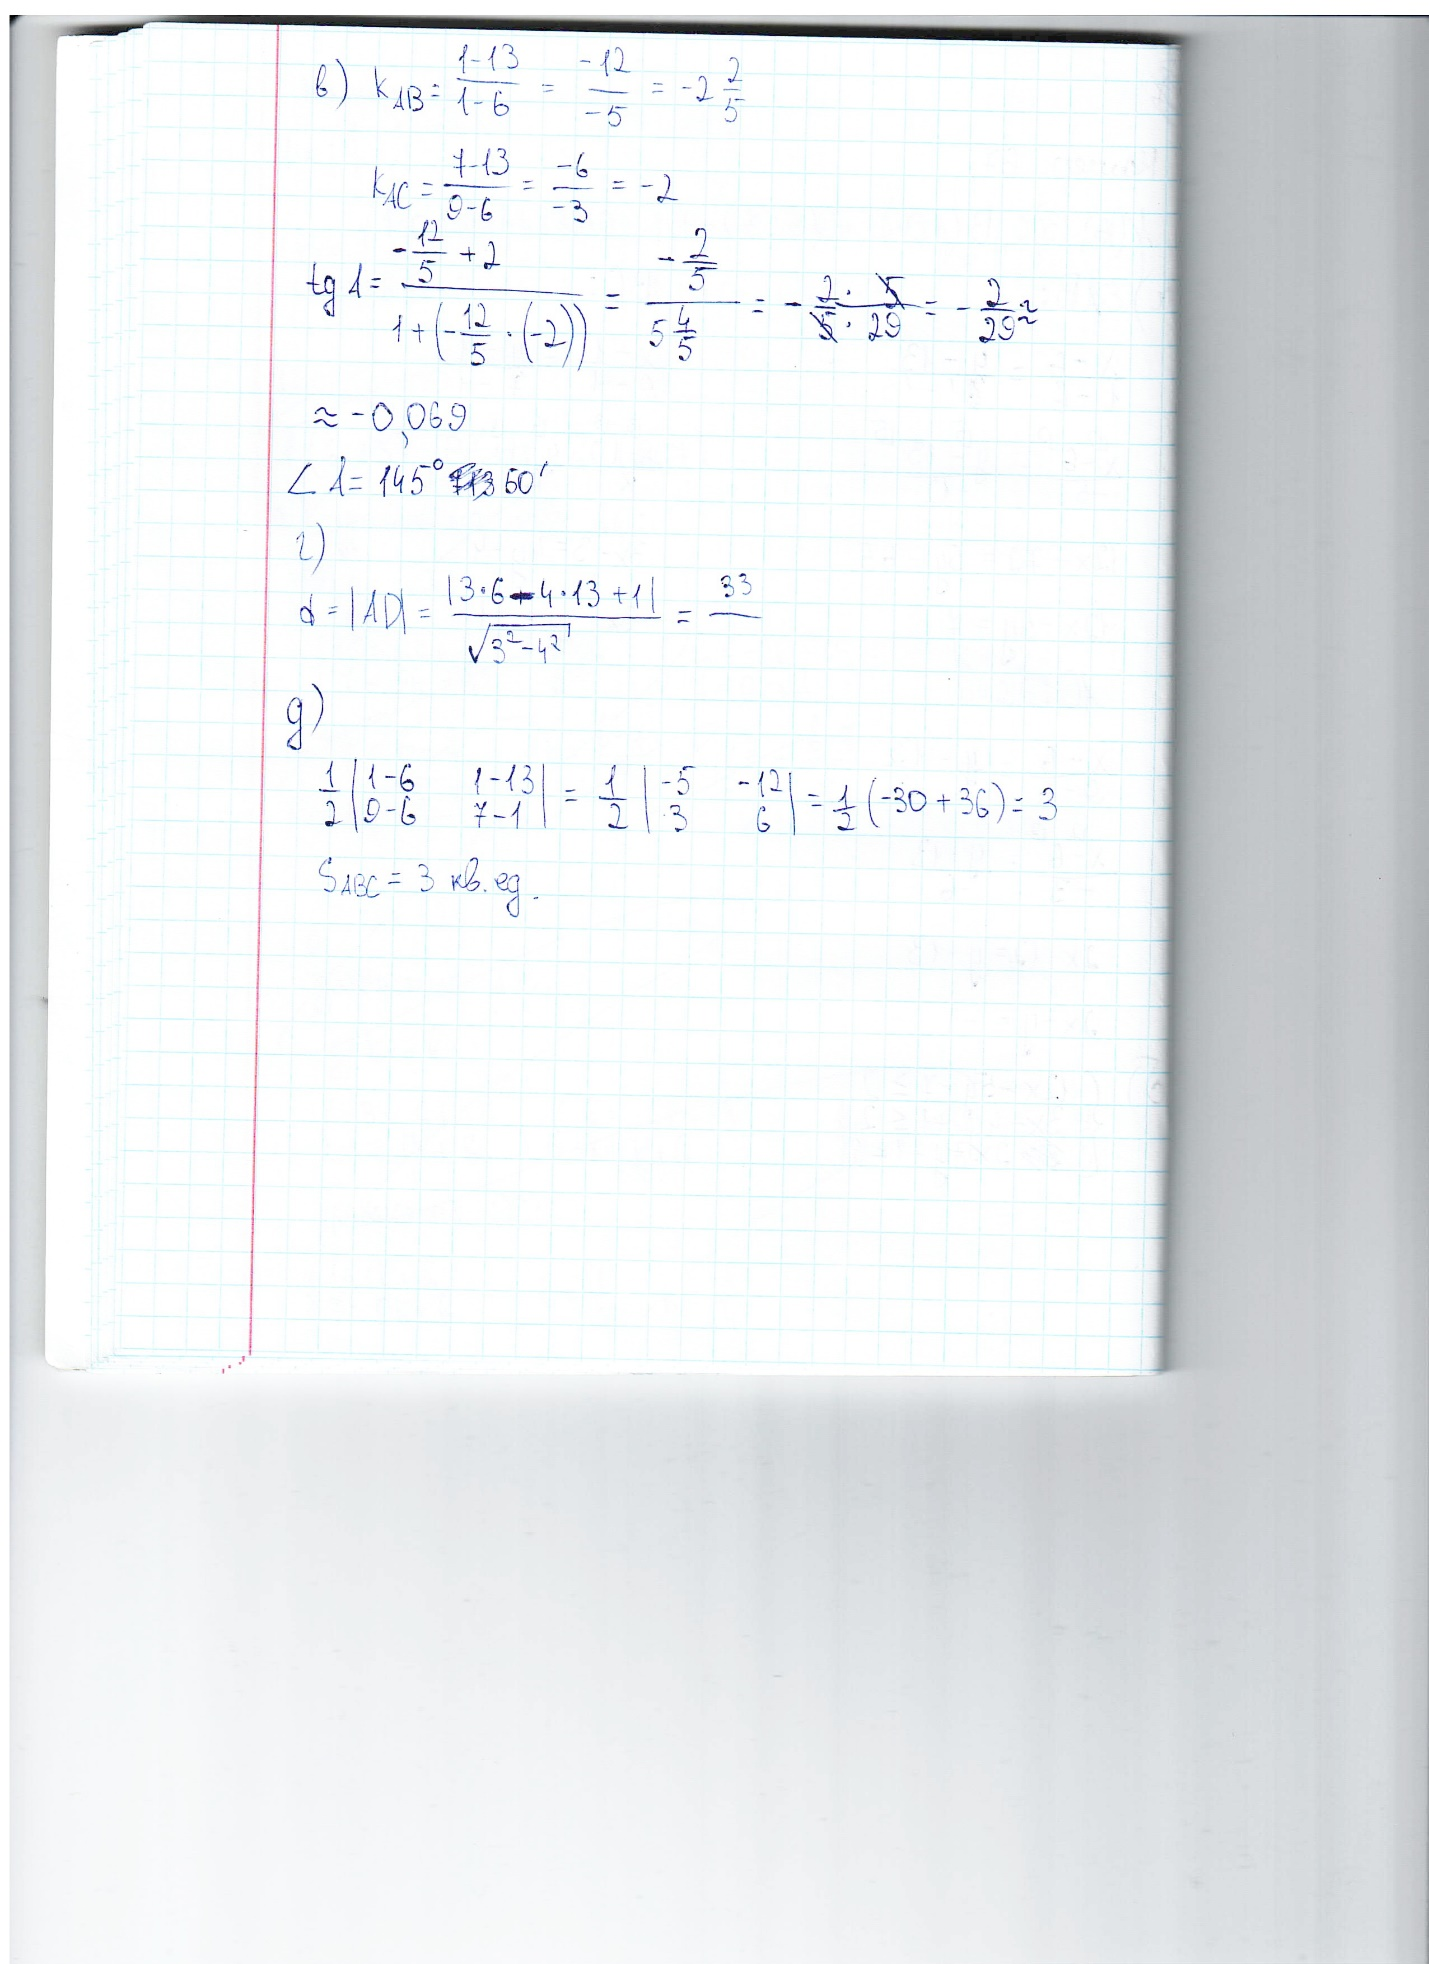 в) k_AB = (1-13)/(1-6) = -12/-5 = -2 2/5
k_AC = (7-13)/(9-6) = -6/-3 = -2
tg A = (-12/5 + 2)/(1 + (-12/5 · (-2))) = (-2/5)/(5 4/5) = - (2 · 5)/(5 · 29) = - 2/29 ≈
≈ -0,069
∠ A = 145° 50'
г)
d = |AD| = |3·6 - 4·13 + 1|/√(3² - 4²) = 33/
д)
1/2 |1-6 1-13; 9-6 7-1| = 1/2 |-5 -12; 3 6| = 1/2 (-30 + 36) = 3
S_ABC = 3 кв. ед.